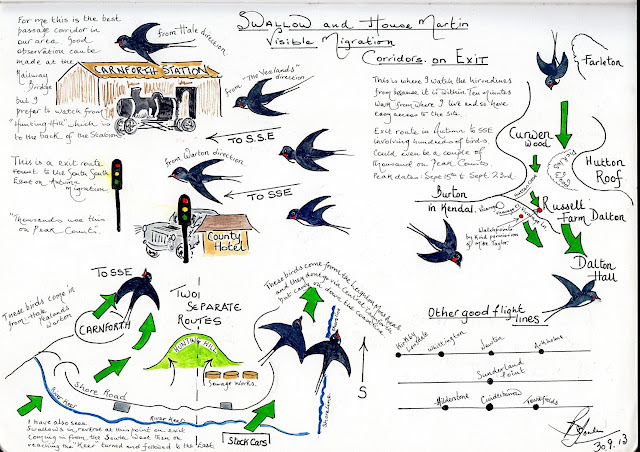 For me this is the best
passage corridor in
our area. Good
observation can be
made at the
Railway
Bridge
but I
prefer to watch from
"Hunting Hill" which is
to the back of the Station
from Hale direction
CARNFORTH STATION
from "The Yealands"
direction
→ TO S.S.E
This is a exit route
South South
East on Autumn
Migration
"Thousands use this
on Peak Counts.
from Warton direction
TO SSE
County
Hotel
SWALLOW and House Martin
Visible Migration
Corridors on EXIT
This is where I watch the hirundines
from because it is within Ten minutes
walk from where I live and so have
easy access to the site.
Exit route in Autumn to SSE
involving hundreds of birds,
could even be a couple of
thousand on Peak Counts
Peak dates: Sept 15th to Sept. 23rd
Farleton
Curwen
Wood
Hutton
Roof
Burton
in Kendal.
Russell
Farm Dalton
Watchpoints
by kind permission
of Mike Taylor.
Dalton
Hall
TO SSE
These birds come in
from Hale
Yealands
Warton
CARNFORTH
TWO
SEPARATE
ROUTES
HUNTING HILL
Sewage Works.
Shore Road
River Keer
River Keer
Shoreline
Stock Cars
S
I have also seen
Swallows in reverse at this point on exit
coming in from the South West then on
reaching the "Keer" turned and followed to the East
These birds come from the Leighton Moss
Other good flight
lines
Hornby
Whittington
Newton
Sunderland
Point
30.9.13